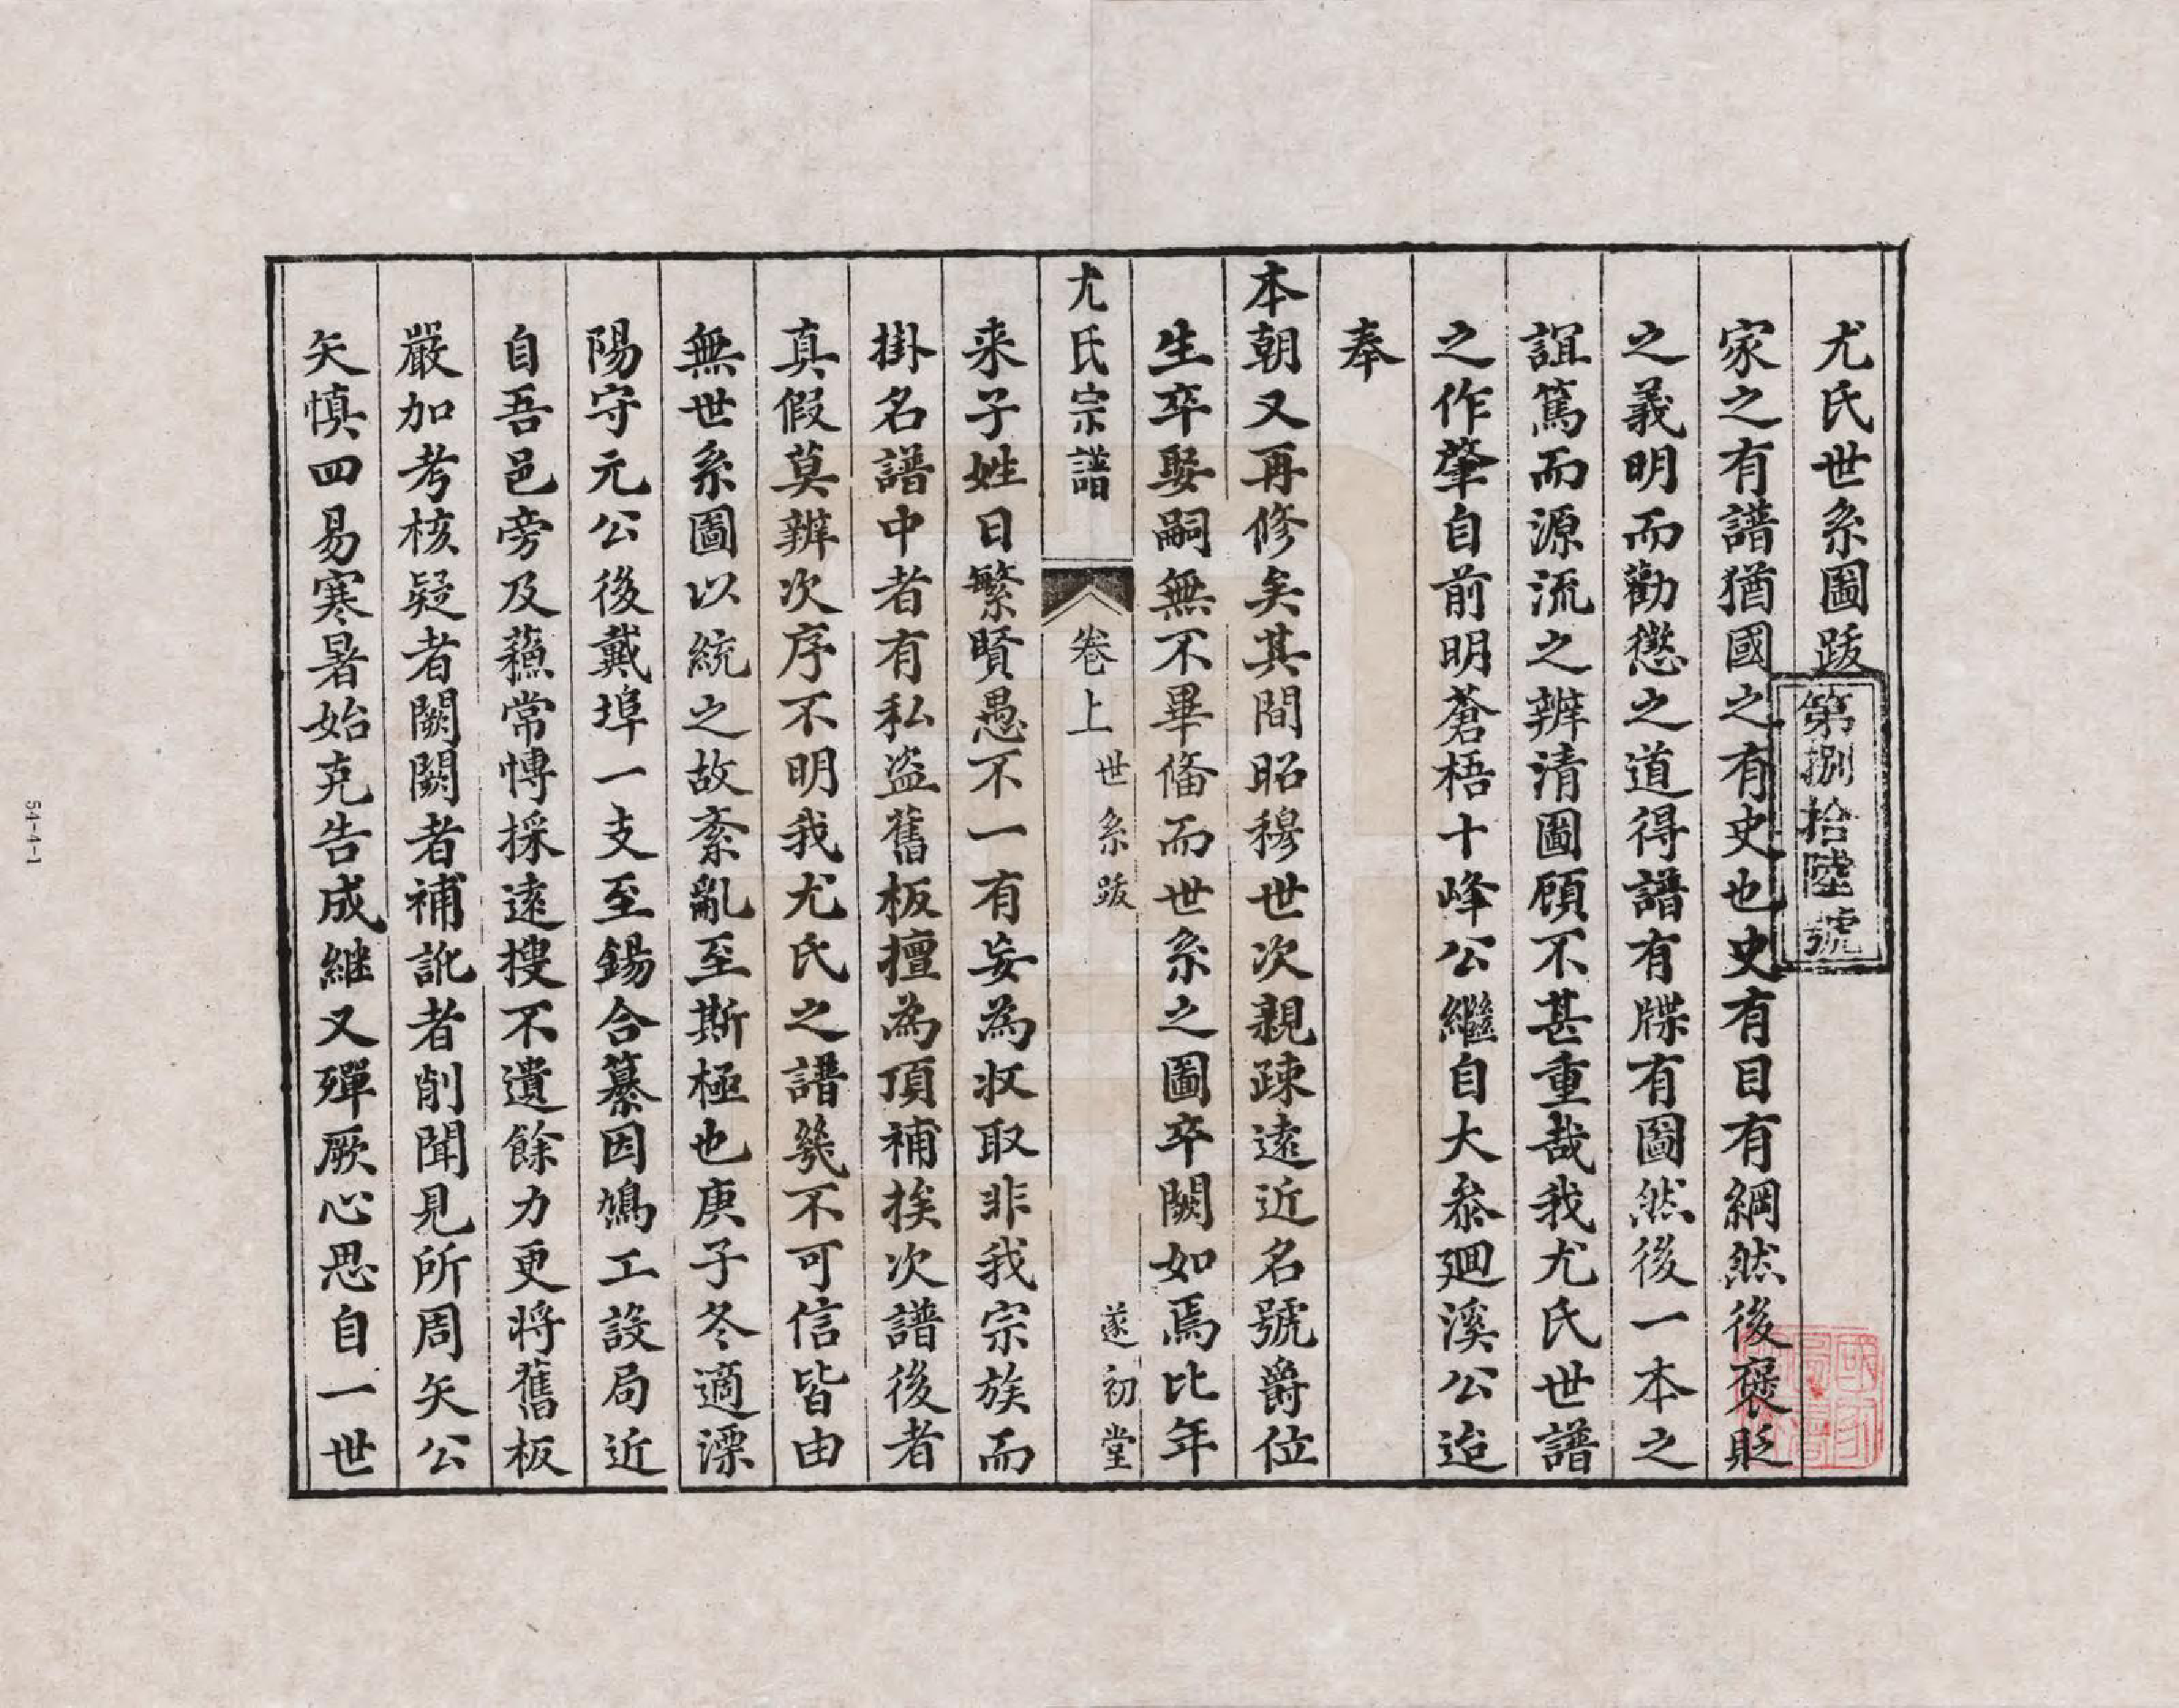 尤氏世系圖跋
第捌拾陸號
家之有譜猶國之有史也史有目有綱然後褒貶
之義明而勸懲之道得譜有牒有圖然後一本之
誼篤而源流之辨清圖顧不甚重哉我尤氏世譜
之作肇自前明蒼梧十峰公繼自大叅廻溪公迨
奉
本朝又再修矣其間昭穆世次親疎遠近名號爵位
生卒娶嗣無不畢偹而世系之圖卒闕如焉比年
尤氏宗譜
卷上
世系跋
遂初堂
来子姓日繁賢愚不一有妄為収取非我宗族而
掛名譜中者有私盗舊板擅為頂補挨次譜後者
真假莫辨次序不明我尤氏之譜㡬不可信皆由
無世系圖以統之故紊亂至斯極也庚子冬適溧
陽守元公後戴埠一支至錫合纂因鳩工設局近
自吾邑旁及蘓常愽採遠搜不遺餘力更将舊板
嚴加考核疑者闕闕者補訛者削聞見所周矢公
矢慎四易寒暑始克告成継又殫厥心思自一世
54-4-1